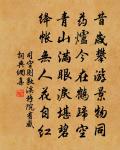 昔歲攀遊景物同
藥爐今在鶴歸空
青山滿眼淚堪碧
絳帳無人花自紅
司空圖敷溪橋院有感
詞典網